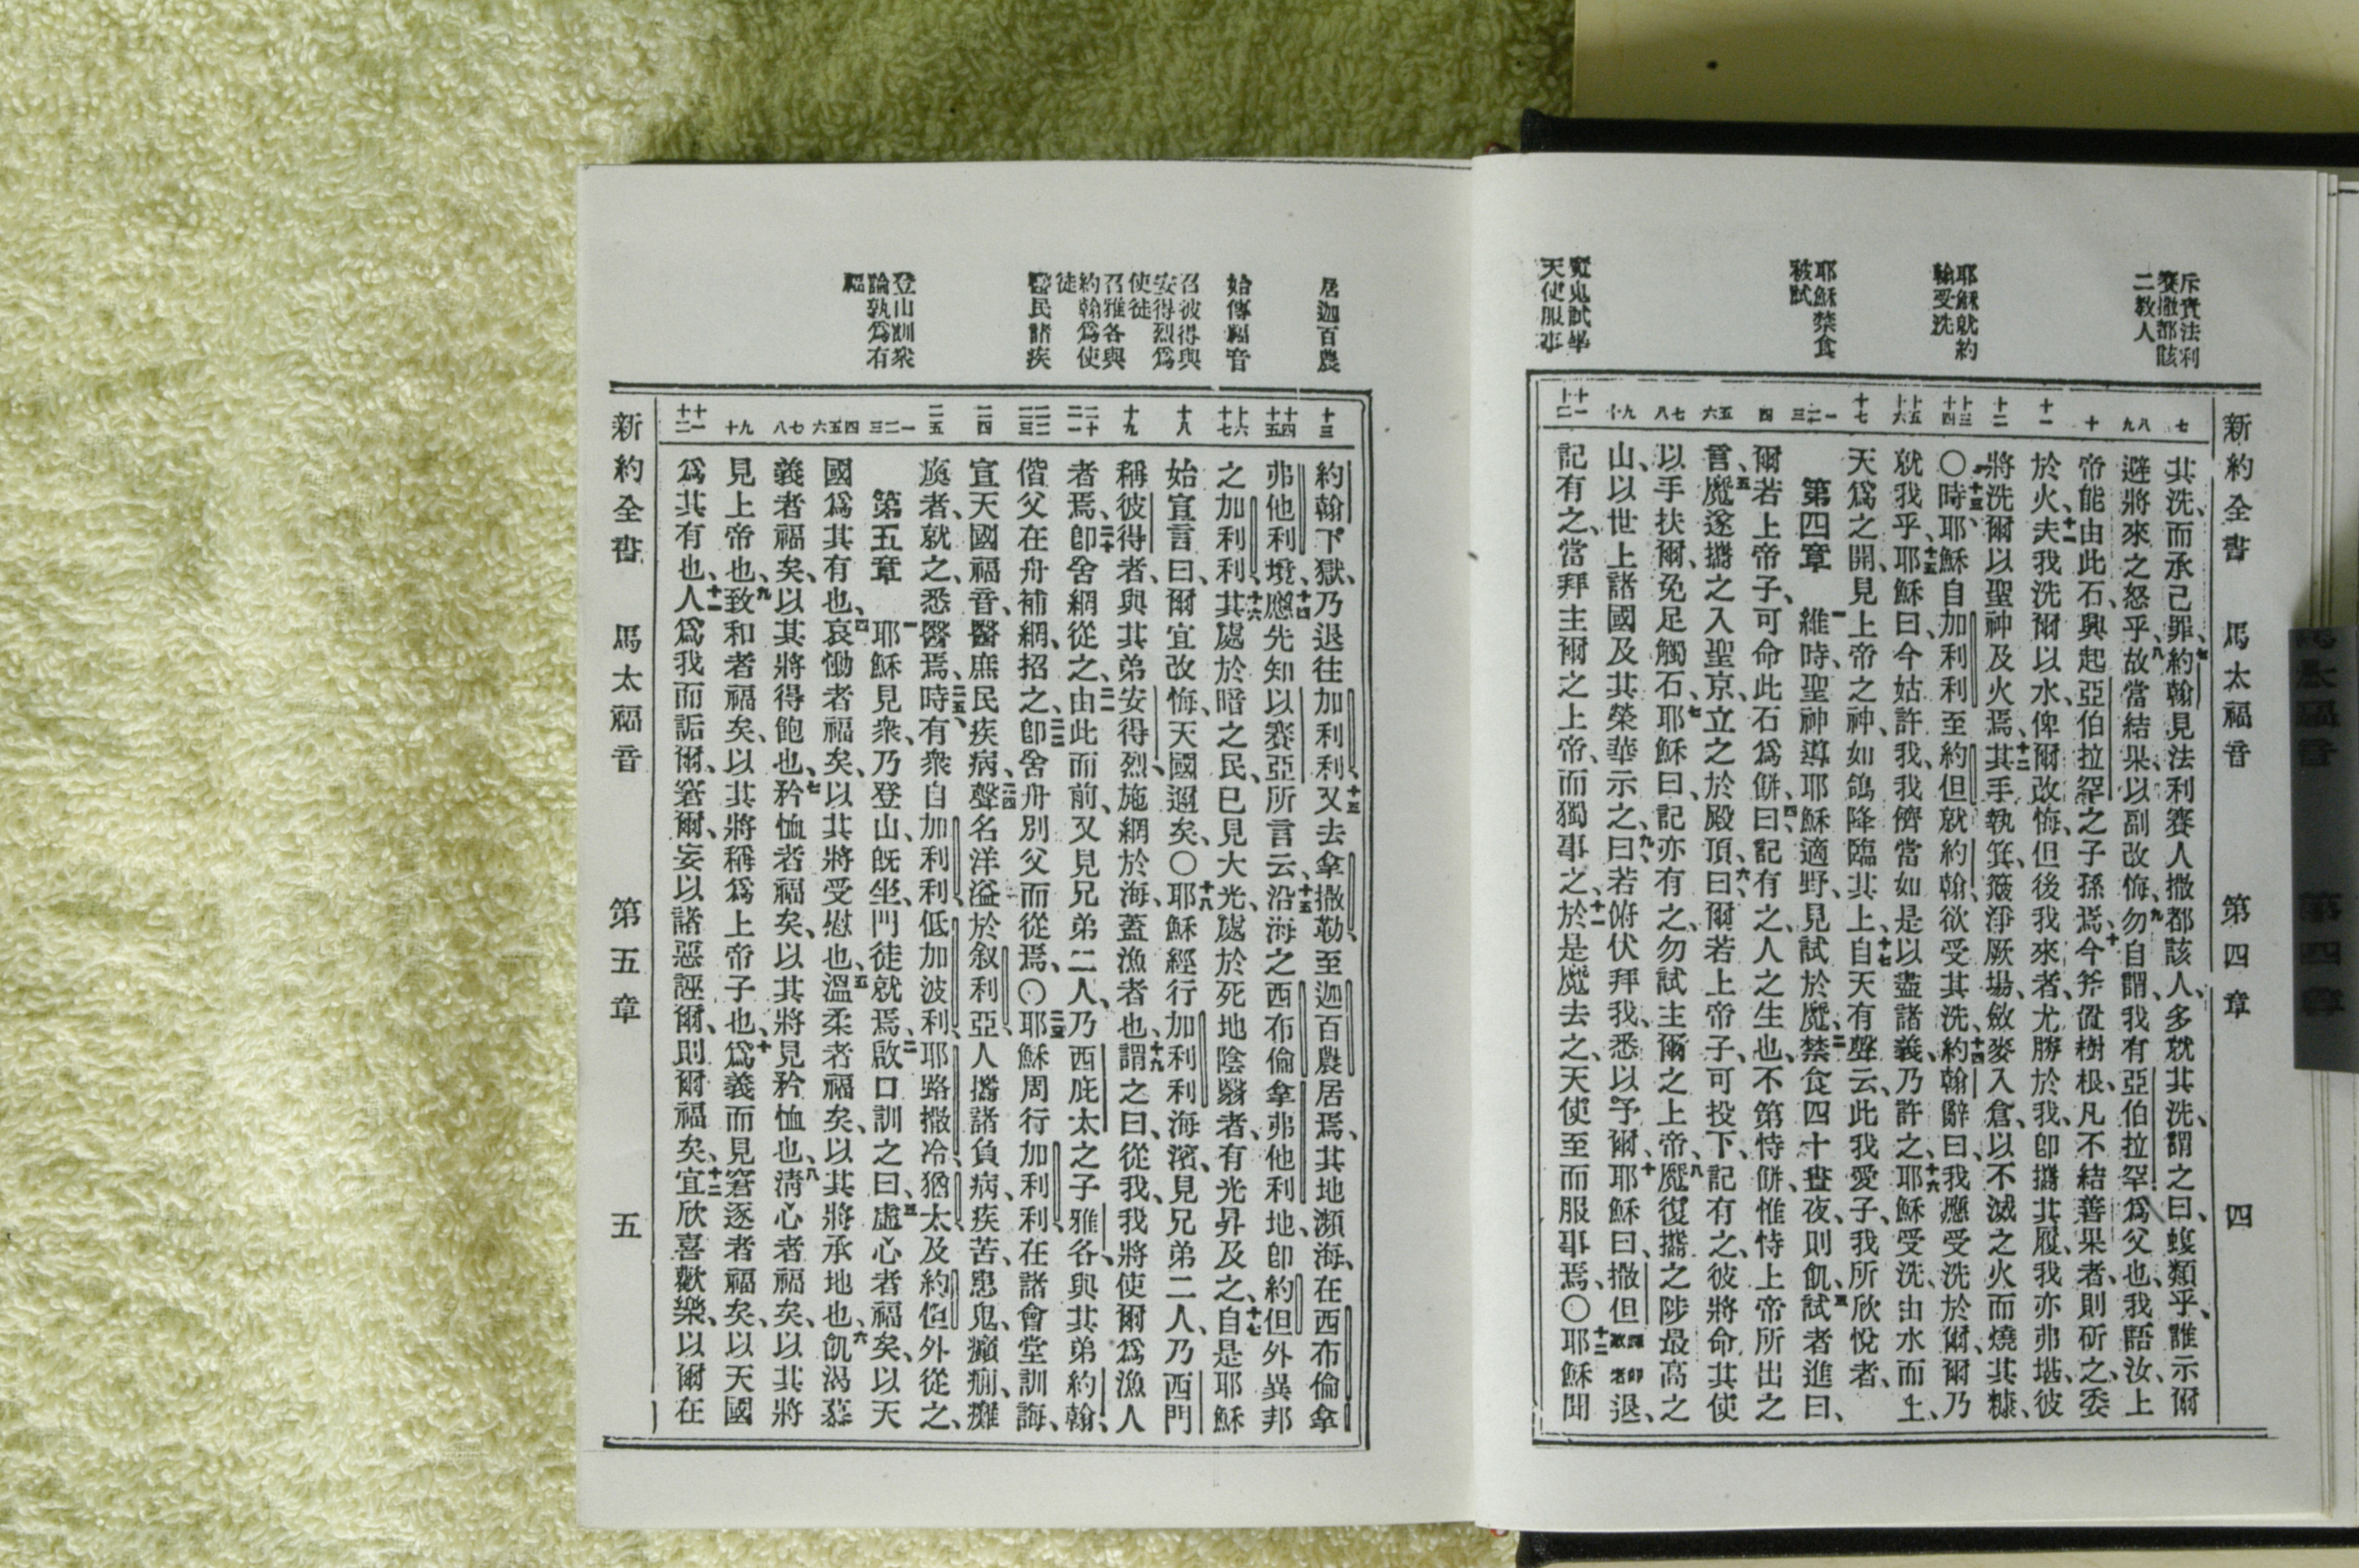 新約全書 馬太福音 第四章 四
斥責法利
賽撒都該
二教人
耶穌就約
翰受洗
耶穌禁食
被試
魔鬼試畢
天使服事
七
八 九
十
十一
十二
十三 十四
十五 十六
十七
一 二 三
四
五 六
七 八
九 十
十一 十二
其洗、而承己罪、七約翰見法利賽人撒都該人、多就其洗、謂之曰、蝮類乎、誰示爾
避將來之怒乎、八故當結果、以副改悔、九勿自謂、我有亞伯拉罕爲父也、我語汝、上
帝能由此石、興起亞伯拉罕之子孫焉、十今斧置樹根、凡不結善果者、則斫之、委
於火、十一夫我洗爾以水、俾爾改悔、但後我來者、尤勝於我、卽攜其履、我亦弗堪、彼
將洗爾以聖神及火焉、十二其手執箕、簸淨厥場、斂麥入倉、以不滅之火而燒其糠、
〇十三時、耶穌自加利利至約但、就約翰、欲受其洗、十四約翰辭曰、我應受洗於爾、爾乃
就我乎、十五耶穌曰、今姑許我、我儕當如是以盡諸義、乃許之、十六耶穌受洗、由水而上、
天爲之開、見上帝之神、如鴿降臨其上、十七自天有聲云、此我愛子、我所欣悅者、
第四章 一維時、聖神導耶穌適野、見試於魔、二禁食四十晝夜、則飢、三試者進曰、
爾若上帝子、可命此石爲餅、四曰、記有之、人之生也、不第恃餅、惟恃上帝所出之
言、五魔遂攜之入聖京、立之於殿頂、六曰、爾若上帝子、可投下、記有之、彼將命其使
以手扶爾、免足觸石、七耶穌曰、記亦有之、勿試主爾之上帝、八魔復攜之陟最高之
山、以世上諸國及其榮華示之、九曰、若俯伏拜我、悉以予爾、十耶穌曰、撒但退、
記有之、當拜主爾之上帝、而獨事之、十一於是魔去之、天使至而服事焉、〇十二耶穌聞
居迦百農
始傳福音
召彼得與
安得烈爲
使徒
召雅各與
約翰爲使
徒
醫民諸疾
登山訓衆
論孰爲有
福
十三
十四 十五
十六 十七
十八
十九
二十 二一
二二 二三
二四
二五
一 二 三
四 五 六
七 八
九 十
十一 十二
約翰下獄、乃退往加利利、十五又去拿撒勒、至迦百農居焉、其地瀕海、在西布倫拿
弗他利境、十四應先知以賽亞所言云、十五沿海之西布倫拿弗他利地、卽約但外異邦
之加利利、十六其處於暗之民、已見大光、處於死地陰翳者、有光昇及之、十七自是耶穌
始宣言曰、爾宜改悔、天國邇矣、〇十八耶穌經行加利利海濱、見兄弟二人、乃西門
稱彼得者、與其弟安得烈、施網於海、蓋漁者也、十九謂之曰、從我、我將使爾爲漁人
者焉、二十卽舍網從之、二一由此而前、又見兄弟二人、乃西庇太之子雅各、與其弟約翰、
偕父在舟補網、招之、二二卽舍舟別父而從焉、〇二三耶穌周行加利利、在諸會堂訓誨、
宣天國福音、醫庶民疾病、二四聲名洋溢於叙利亞、人攜諸負病、疾苦、患鬼、癲癇、癱
瘓者、就之、悉醫焉、二五時、有衆自加利利、低加波利、耶路撒冷、猶太、及約但外從之、
第五章 一耶穌見衆、乃登山、旣坐、門徒就焉、二啟口訓之曰、三虛心者福矣、以天
國爲其有也、四哀慟者福矣、以其將受慰也、五溫柔者福矣、以其將承地也、六飢渴慕
義者福矣、以其將得飽也、七矜恤者福矣、以其將見矜恤也、八淸心者福矣、以其將
見上帝也、九致和者福矣、以其將稱爲上帝子也、十爲義而見窘逐者福矣、以天國
爲其有也、十一人爲我而詬爾、窘爾、妄以諸惡誣爾、則爾福矣、十二宜欣喜歡樂、以爾在
新約全書 馬太福音 第五章 五